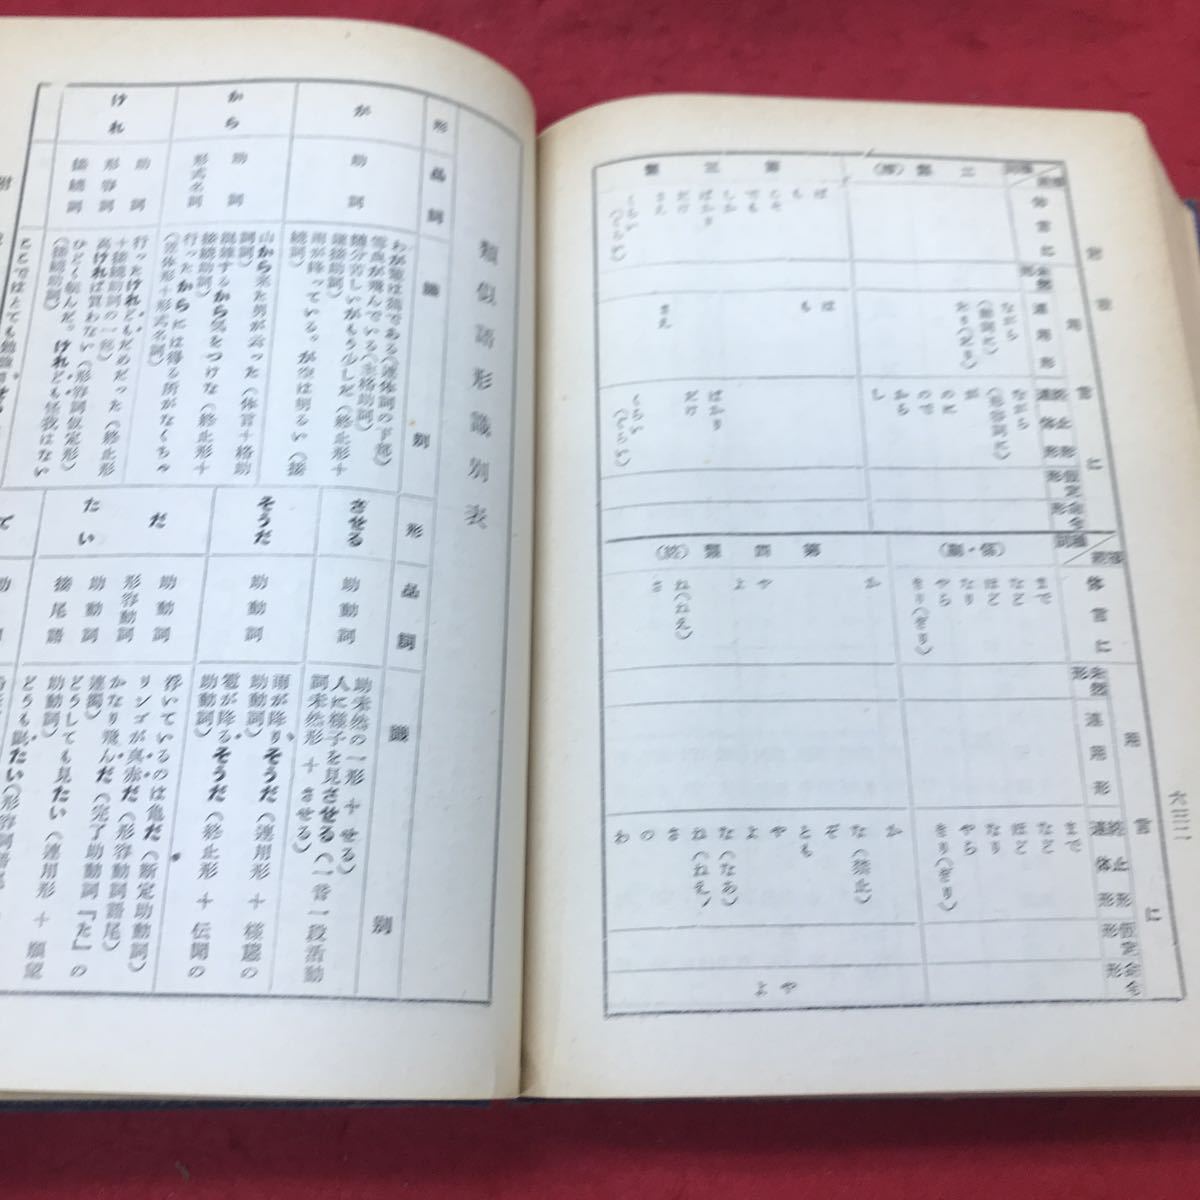 六三二
用言に
体言に
未然形
連用形
終止形
連体形
仮定形
命令形
二類(接)
ながら(動詞に)
たり(だり)
ながら(形容詞に)
が
のに
ので
から
し
第三類
は
も
こそ
でも
しか
ばかり
だけ
さえ
くらい(ぐらい)
は
も
さえ
ばかり
だけ
くらい(ぐらい)
(係・副)
まで
など
ほど
なり
やら
きり(ぎり)
まで
など
ほど
なり
やら
きり(ぎり)
第四類(終)
か
や
よ
ね(ねえ)
さ
か
な(禁止)
ぞ
とも
や
よ
な(なあ)
ね(ねえ)
さ
の
わ
や
よ
類似語形識別表
形
品詞
識別
が
助詞
わが輩は猫である(連体詞の下部)
雪鳥が飛んでいる(主格助詞)
随分苦しいがもう少しだ(終止形+
接続助詞)
雨が降っている。が空は明るい(接
続詞)
から
助詞
形式名詞
山から来た男が云った(体言+格助
詞)
混雑するから気をつけな(終止形+
接続助詞)
行ったからには得る所がなくちゃ
(連体形+形式名詞)
けれ
助詞
形容詞
接続詞
行ったけれどもだめだった(終止形
+接続助詞の一部)
高ければ買わない(形容詞仮定形)
ひどく転んだ。けれども怪我はない
(接続助詞)
形
品詞
識別
させる
助動詞
助未然の一形+せる)
人に様子を見させる(一音一段活動
詞未然形+させる)
そうだ
助動詞
雨が降りそうだ(連用形+様態の
助動詞)
雹が降るそうだ(終止形+伝聞の
助動詞)
だ
助動詞
形容動詞
吞いているのは亀だ(断定助動詞)
リンゴが真赤だ(形容動詞語尾)
かなり飛んだ(完了助動詞『た』の
連濁)
たい
助動詞
接尾語
どうしても見たい(連用形+願望
助動詞)